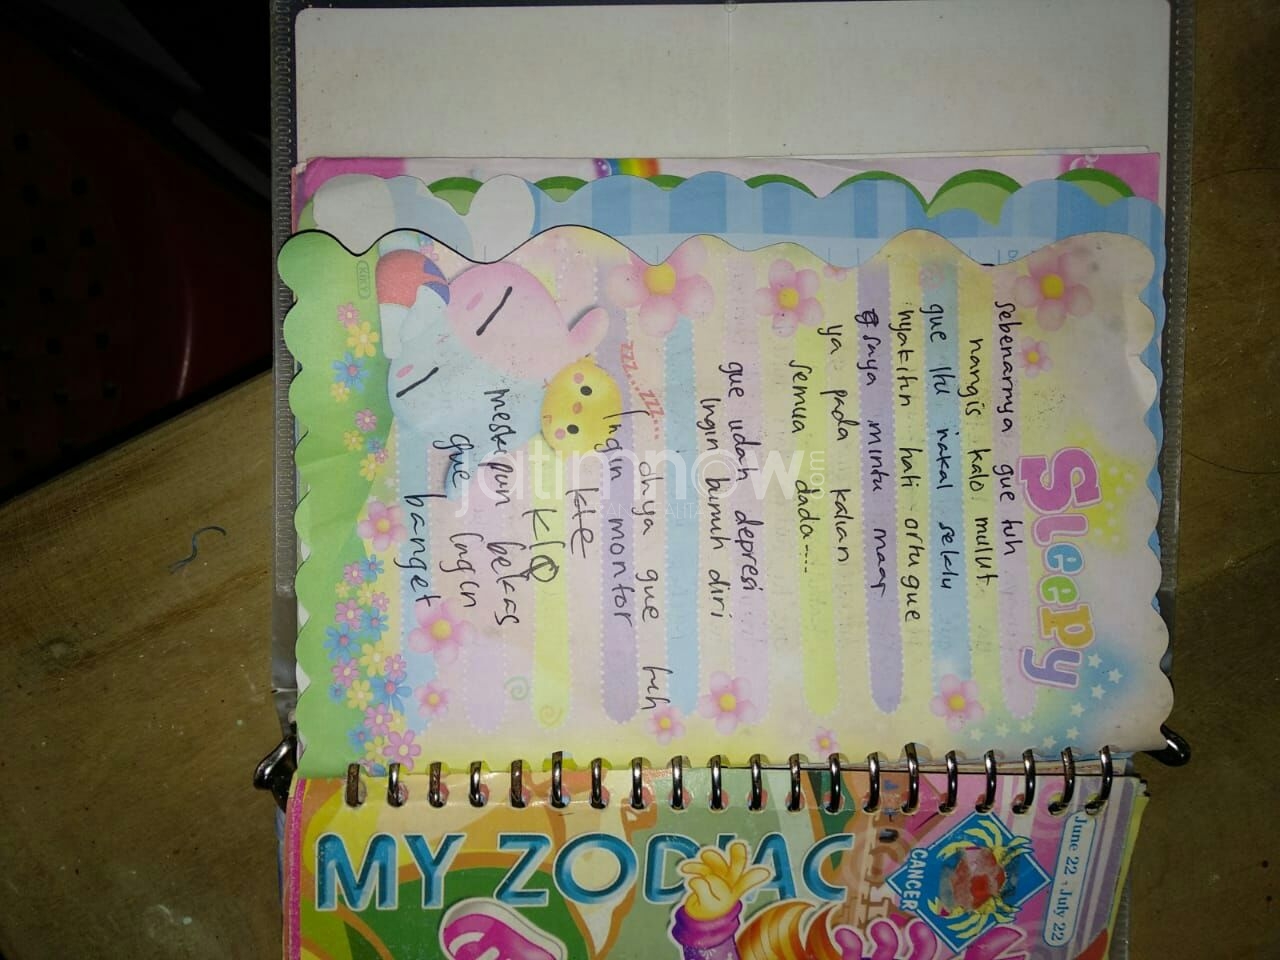 Sleepy
sebenarnya gue tuh
nangis kalo mulut
gue itu nakal selalu
nyakitin hati ortu gue
saya mintu maap
ya pada kalian
semua dada....
gue udah depresi
Ingin bunuh diri
ohya gue tuh
Ingin montor
kte
KLO
meskipun bekas
gue Ingin
banget
zzz...zzz...
jatimnow
.com
MY ZODIAC
CANCER
June 22 - July 22